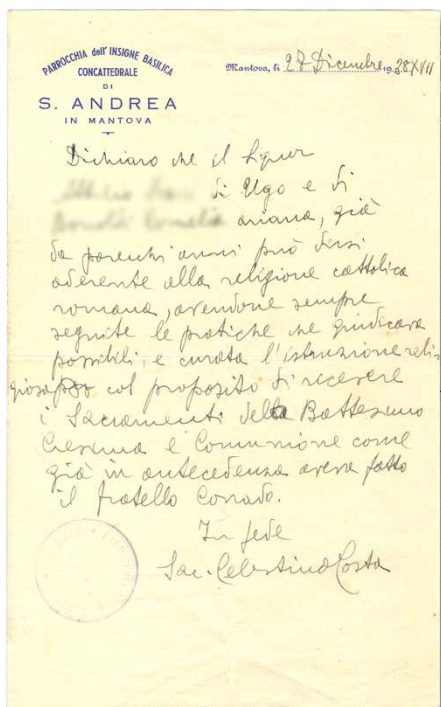 PARROCCHIA dell'INSIGNE BASILICA
CONCATTEDRALE
DI
S. ANDREA
IN MANTOVA
Mantova, li 27 Dicembre 1938 XVII
Dichiaro che il Signor
di Ugo e di
ariana, già
da parecchi anni può dirsi
aderente alla religione cattolica
romana, avendone sempre
seguite le pratiche che giudicava
possibili, e curata l'istruzione reli-
giosa col proposito di ricevere
i Sacramenti del Battesimo
Cresima e Comunione come
già in antecedenza aveva fatto
il fratello Corrado.
In fede
Sac. Celestino Costa